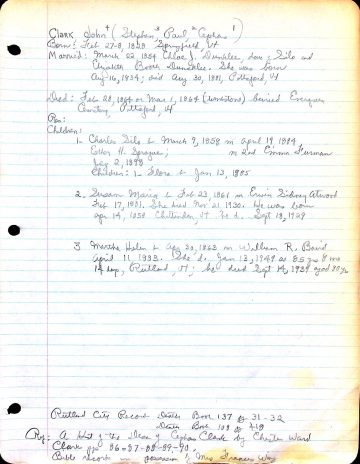 Clark John⁴ (Stephen³ Paul² Cephas¹)
Born: Feb 27-8, 1828 Springfield, Vt
Married: March 22, 1854 Chloe J. Dunklee, dau; Silo and
Elizabeth Booth Dunklee. She was born
Aug 16, 1834; died Aug 30, 1891, Pittsford, Vt
Died: Feb 28, 1864 or Mar 1, 1864 (tombstone) buried Evergreen
Cemetery, Pittsford, Vt
Res:
Children:
1. Charles Silo b March 9, 1858 m April 19, 1884
Esther H. Sprague; m 2nd Emma Furman
2, 1898
Children: 1- Flora b Jan 13, 1885
2. Susan Maria b Feb 23, 1861 m Erwin Sidney Atwood
Feb 17, 1881. She died Nov 21 1930. He was born
apr 14, 1858 Chittenden, Vt he d. Sept 18, 1929
3 Martha Helen b Apr 30, 1863 m William R. Baird
April 11, 1883. She d. Jan 13, 1949 as 85 yrs 8 mo
14 day, Rutland, Vt; he died Sept 14, 1939 aged 80 yrs
Rutland City Record Deaths Book 137 pg 31-32
Deaths Book 109 pg 418
Ref: A Hist of the Desc of Cephas Clark by Chester Ward
Clark pgs 86-87-88-89-90.
Bible records in possession of Mrs Frances